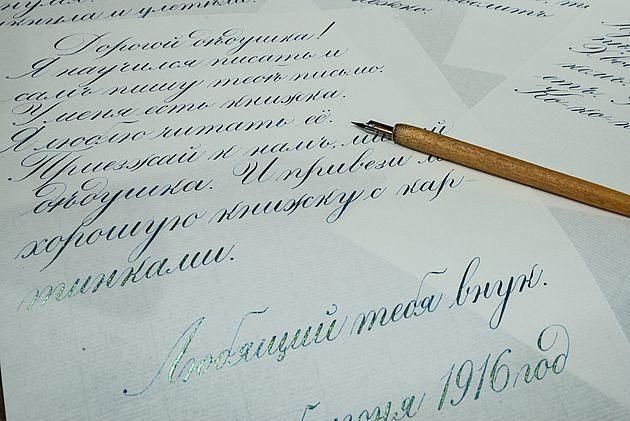 и улетила.
Дорогой дѣдушка!
Я научился писать и
самъ пишу тебѣ письмо.
У меня есть книжка.
Я люблю читать её.
Приезжай к намъ,
дѣдушка. И привези
хорошую книжку с кар-
тинками.
Любящий тебя внук.
июня 1916 год